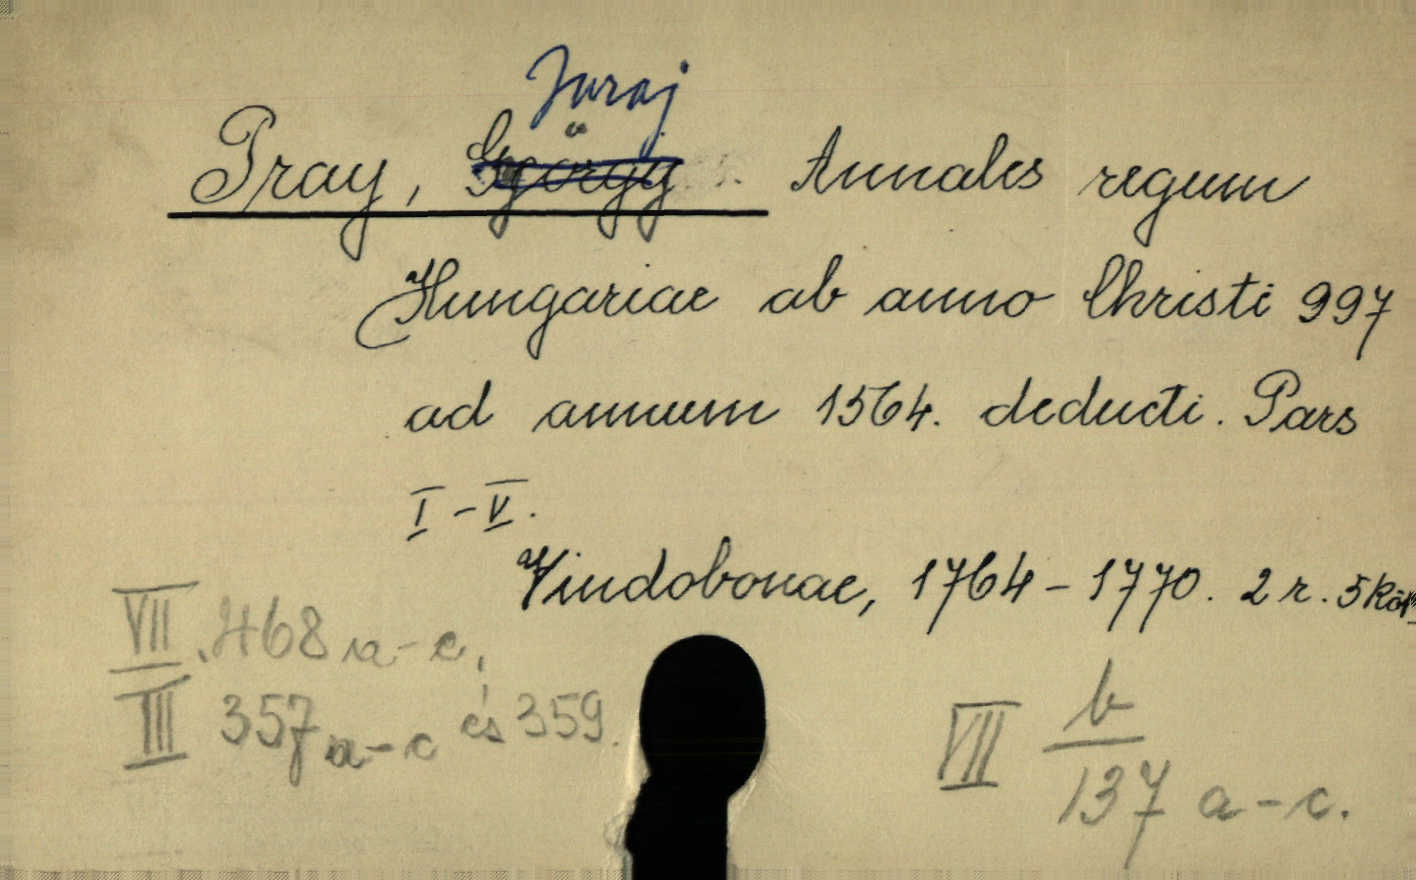 Juraj
Pray, György Annales regum
Hungariae ab anno Christi 997
ad annum 1564. deducti. Pars
I-V.
Vindobonae, 1764-1770. 2 r. 5 köt
VII. 468 a-c,
III 357 a-c és 359.
VII b
137 a-c.